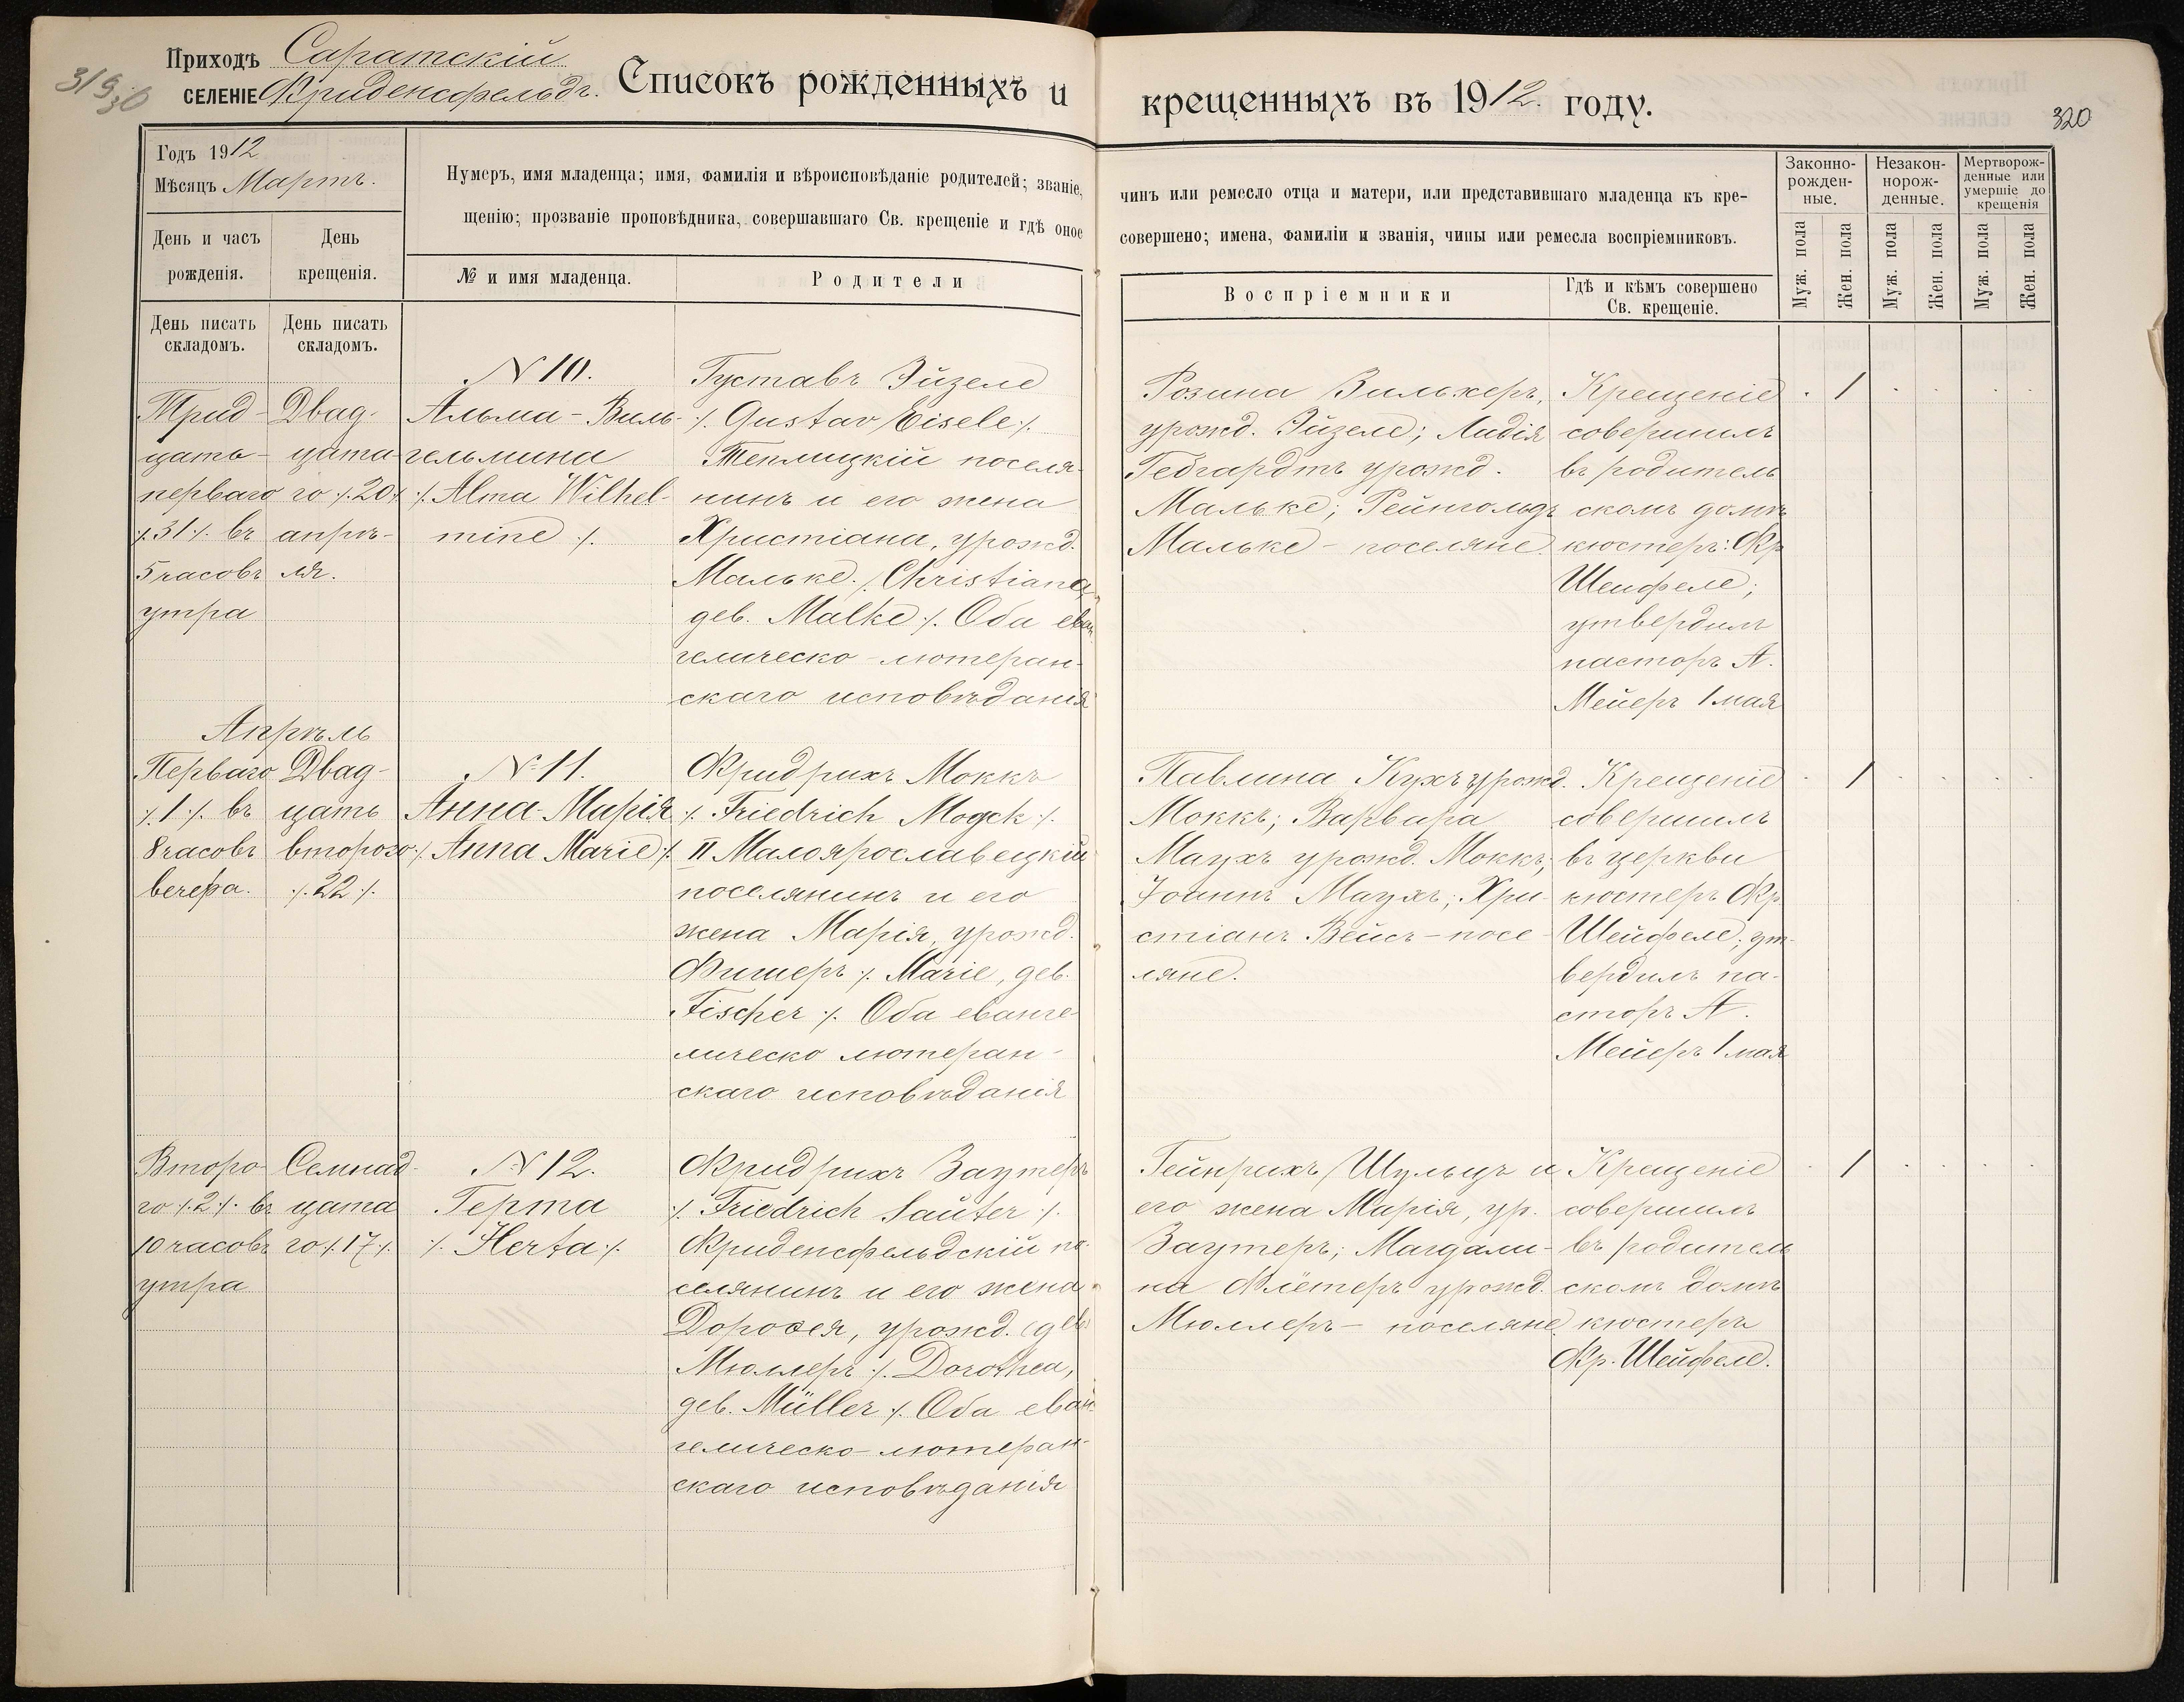 Приходъ Саратскій
селеніе Фриденсфельдъ. Списокъ рожденныхъ и крещенныхъ въ 1912. году.
319
30
320
Годъ 1912
Мѣсяцъ Мартъ.
Нумеръ, имя младенца; имя, фамилія и вѣроисповѣданіе родителей; званіе, чинъ или ремесло отца и матери, или представившаго младенца къ кре-
щенію; прозваніе проповѣдника, совершавшаго Св. крещеніе и гдѣ оное совершено; имена, фамиліи и званія, чины или ремесла воспріемниковъ.
День и часъ
рожденія.
День
крещенія.
№ и имя младенца.
Родители
Воспріемники
Гдѣ и кѣмъ совершено
Св. крещеніе.
Законно-
рожден-
ные.
Незакон-
норож-
денные.
Мертворож-
денные или
умершіе до
крещенія
Муж. пола
Жен. пола
Муж. пола
Жен. пола
Муж. пола
Жен. пола
День писать
складомъ.
День писать
складомъ.
Трид-
цать-
перваго
/.31/. въ
5 часовъ
утра
Двад-
цата-
го /.20/.
апрѣ-
ля.
N 10.
Альма-Виль-
гельмина
/. Alma Wilhel-
mine /.
Густавъ Эйзеле
/. Gustav Eisele /.
Теплицкій поселя-
нинъ и его жена
Христіана, урожд.
Мальке. /. Christiana,
geb. Malke /. Оба еван-
гелическо-лютеран-
скаго исповѣданія
Розина Вилькеръ,
урожд. Эйзеле; Лидія
Гебгардтъ урожд.
Мальке; Рейнгольдъ
Мальке - поселяне
Крещеніе
совершилъ
въ родитель
скомъ домѣ
кюстеръ: Фр
Шейфеле;
утвердилъ
пасторъ А.
Мейеръ 1 мая
1
Апрѣль
Перваго
/.1/. въ
8 часовъ
вечера.
Двад-
цать
второго
/.22/.
N 11.
Анна-Марія
/. Anna Marie /.
Фридрихъ Моккъ
/. Friedrich Mogck /.
II Малоярославецкій
поселянинъ и его
жена Марія, урожд.
Фишеръ /. Marie, geb.
Fischer /. Оба еванге-
лическо лютеран-
скаго исповѣданія
Павлина Кухъ урожд.
Моккъ; Варвара
Маухъ урожд. Моккъ;
Іоаннъ Маухъ; Хри-
стіанъ Вейсъ - посе-
ляне.
Крещеніе
совершилъ
въ церкви
кюстеръ Фр
Шейфеле; ут-
вердилъ па-
сторъ А.
Мейеръ 1 мая
1
Второ-
го /.2/. въ
10 часовъ
утра
Семнад-
цата
го /.17/.
N 12.
Герта
/. Herta /.
Фридрихъ Заутеръ
/. Friedrich Sauter /.
Фриденсфельдскій по-
селянинъ и его жена
Дороѳея, урожд.
Мюллеръ /. Dorothea,
geb. Müller /. Оба еван-
гелическо-лютеран-
скаго исповѣданія
Гейнрихъ Шульцъ и
его жена Марія, ур.
Заутеръ; Магдали-
на Флётеръ урожд.
Мюллеръ - поселяне
Крещеніе
совершилъ
въ родитель
скомъ домѣ
кюстеръ
Фр. Шейфеле.
1